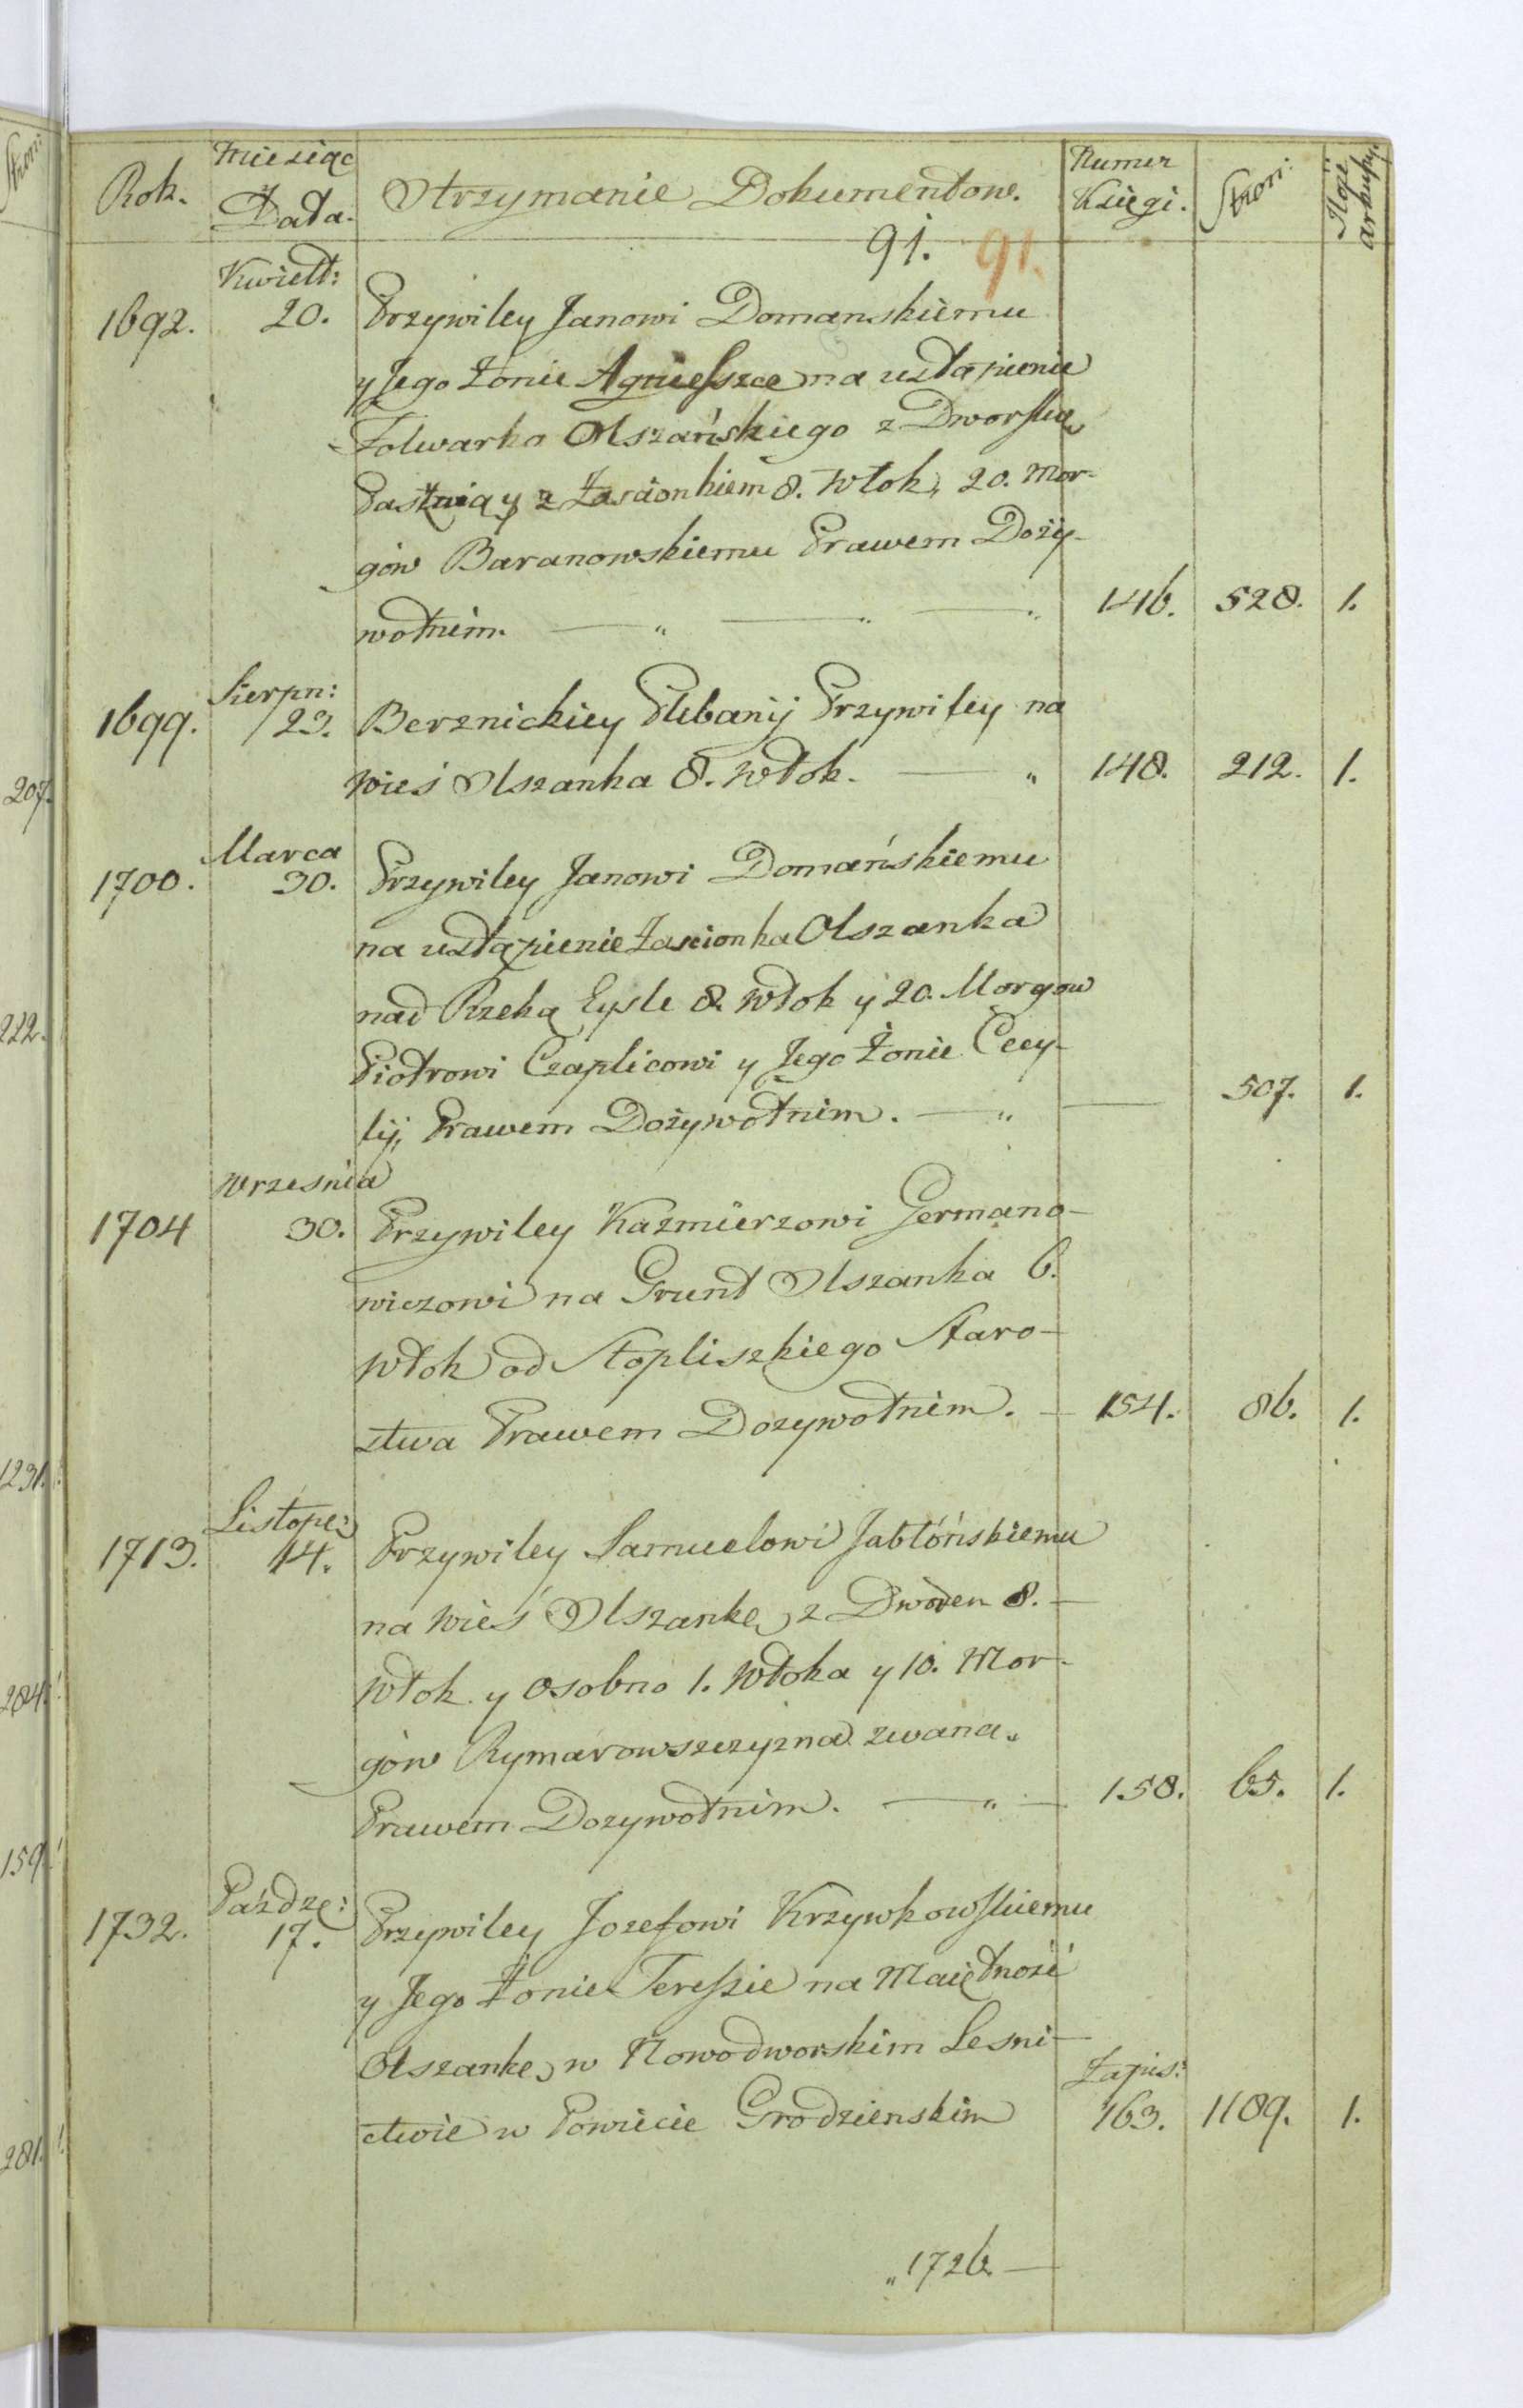 Rok. Miesiąc Data. Strzymanie Dokumentow. Numer Księgi. Stron: Ilość arkuszy.
91. 91.
Kwiett:
1692. 20. Przywiley Janowi Domanskiemu
y Jego Żonie Agnieszce na ustąpienie
Folwarku Olszańskiego z Dworską
Pastnią y z Zascionkiem 8. Włok, 20. Mor-
gów Baranowskiemu Prawem Doży-
wotnim. 146. 528. 1.
Sierpn:
1699. 23. Berznickiey Plebanij Przywiley na
wieś Olszanka 8. Włok. 148. 212. 1.
Marca
1700. 30. Przywiley Janowi Domańskiemu
na ustąpienie Zascionka Olszanka
nad Rzeką 8. Włok y 20. Morgow
Piotrowi Czaplicowi y Jego Żonie Cecy-
lij, Prawem Dożywotnim. 507. 1.
Wrzesnia
1704 30. Przywiley Kazmierzowi Germano-
wiczowi na Grunt Olszanka 6.
Włok od Stopliszkiego Staro-
stwa Prawem Dozywotnim. 154. 86. 1.
Listope:
1713. 14. Przywiley Samuelowi Jabłóńskiemu
na Wieś Olszankę z Dworem 8.
Włok y Osobno 1. Włoka y 10. Mor-
gów Rymarowszczyzna zwana.
Prawem Dozywotnim. 158. 65. 1.
Paźdze:
1732. 17. Przywiley Jozefowi Krzywkowskiemu
y Jego Żonie Teressie na Maiętność
Olszankę w Nowodworskim Lesni-
ctwie w Powiecie Grodzienskim Zapis: 163. 1189. 1.
„1726.
207.
222.
1231.
284.
159.
281.